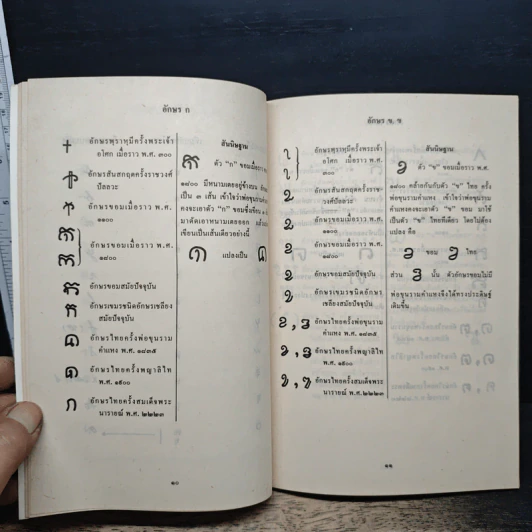 อักษร ก
อักษรพฺราหฺมีครั้งพระเจ้า
อโศก เมื่อราว พ.ศ. ๓๐๐
อักษรสันสกฤตครั้งราชวงศ์
ปัลลวะ
อักษรขอมเมื่อราว พ.ศ.
๑๑๐๐
อักษรขอมเมื่อราว พ.ศ.
๑๘๐๐
อักษรขอมสมัยปัจจุบัน
อักษรเขมรชนิดอักษรเชลียง
สมัยปัจจุบัน
อักษรไทยครั้งพ่อขุนราม
คำแหง พ.ศ. ๑๘๓๕
อักษรไทยครั้งพญาลิไท
พ.ศ. ๑๙๐๐
ก อักษรไทยครั้งสมเด็จพระ
นารายณ์ พ.ศ. ๒๒๒๓
สันนิษฐาน
ตัว "ก" ขอมเมื่อราว พ.ศ.
๑๘๐๐ มีหนามเตยอยู่ข้างบน
เป็น ๓ เส้น เข้าใจว่าพ่อขุนราม
คงจะเอาตัว "ก" ขอม
มาตัดเอาหนามเตยออก แล้ว
เขียนเป็นเส้นเดียวอย่างนี้
แปลงเป็น
๑๐
อักษร ข, ฃ
อักษรพฺราหฺมีครั้งพระเจ้า
อโศก เมื่อราว พ.ศ. ๓๐๐
อักษรสันสกฤตครั้งราช
วงศ์ปัลลวะ
อักษรขอมเมื่อราว พ.ศ.
๑๑๐๐
อักษรขอมเมื่อราว พ.ศ.
๑๘๐๐
อักษรขอมสมัยปัจจุบัน
อักษรเขมรชนิดอักษร
เชลียงสมัยปัจจุบัน
อักษรไทยครั้งพ่อขุนราม
คำแหง พ.ศ. ๑๘๓๕
อักษรไทยครั้งพญาลิไท
พ.ศ. ๑๙๐๐
อักษรไทยครั้งสมเด็จพระ
นารายณ์ พ.ศ. ๒๒๒๓
สันนิษฐาน
ตัว "ข" ขอมเมื่อราว พ.ศ.
๑๘๐๐ คล้ายกันกับตัว "ข" ไทย ครั้ง
พ่อขุนรามคำแหง เข้าใจว่าพ่อขุนราม
คำแหงคงจะเอาตัว "ข" ขอม มาใช้
เป็นตัว "ข" ไทยทีเดียว โดยไม่ต้อง
แปลง คือ
ขอม ไทย
ส่วน นั้น ตัวอักษรขอมไม่มี
พ่อขุนรามคำแหงจึงได้ทรงประดิษฐ์
เติมขึ้น
๑๑